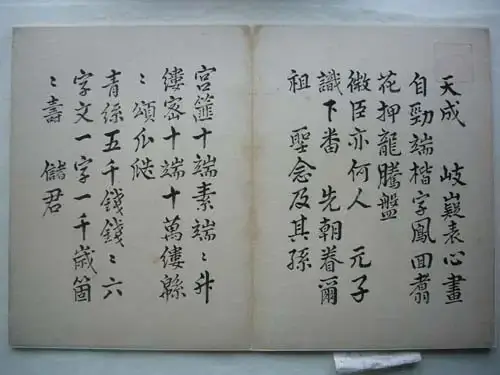 天成 岐嶷表心畫
自勁端楷字鳳回翥
花押龍騰盤
微臣亦何人 元子
識下番 先朝眷爾
祖 聖念及其孫
宮箑十端素端〻
縷密十端十萬縷緜
〻頌瓜瓞
青絲五千錢錢〻六
字文一字一千歲箇
〻壽 儲君